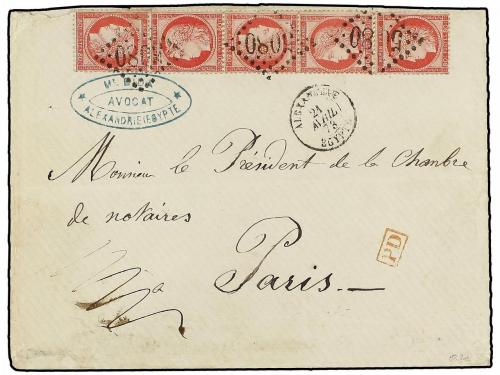 5080
5080
5080
AVOCAT
ALEXANDRIE (EGYPTE)
ALEXANDRIE
21
AVRIL
EGYPTE
Monsieur le Président de la Chambre
de notaires
PD
Paris